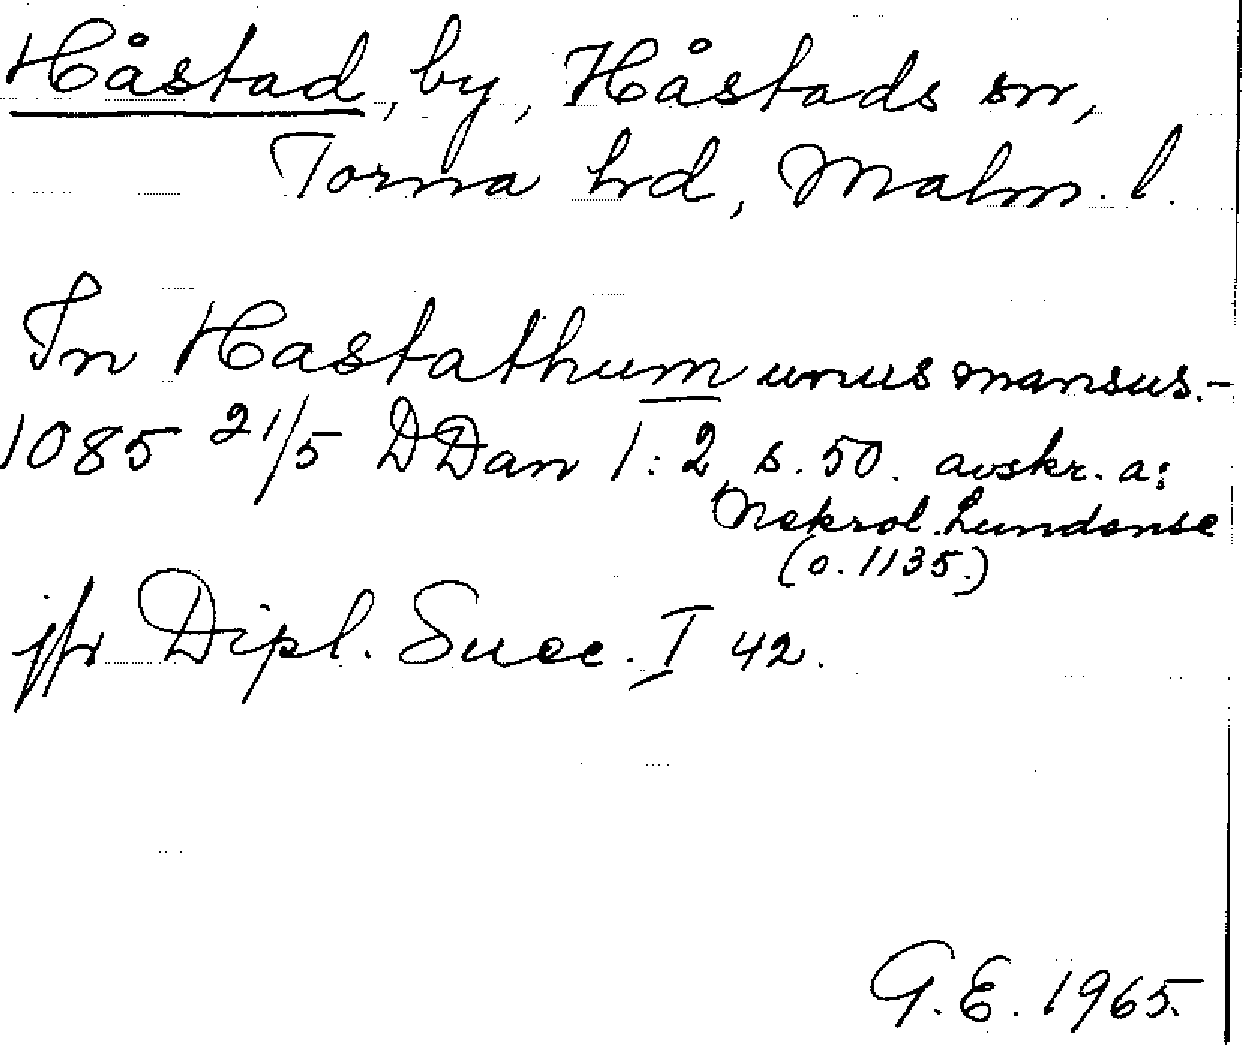 Håstad, by, Håstads sn,
Torna hd, Malm. l.
In Hastathum unus mansus.-
1085 21/5 DDan 1:2 s. 50. avskr. a:
Nekrol. Lundense
(o. 1135.)
jfr Dipl. Suec. I 42.
G.E. 1965.